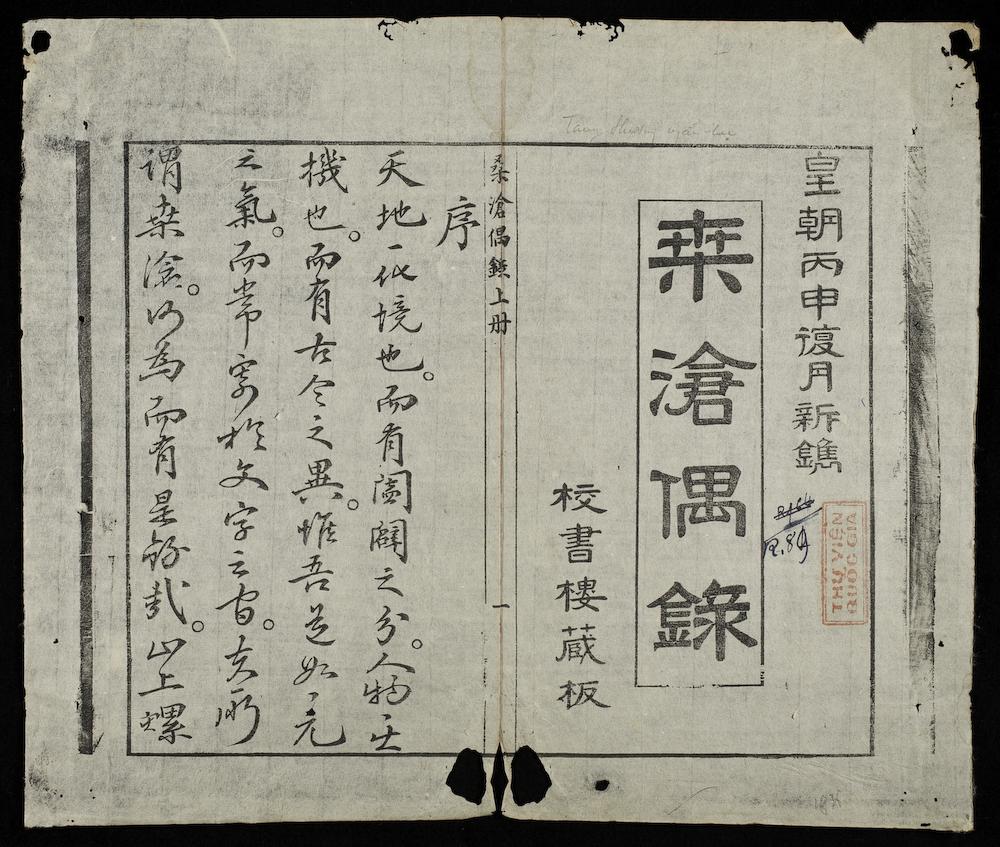 皇朝丙申復月新鐫
桒滄偶錄
校書樓蔵板
THƯ VIỆN
QUỐC GIA
R.84
Tang thương ngẫu-lục
桒滄偶錄上册
一
序
天地一化境也。而有闔闢之分。人物
機也。而有古今之異。惟吾道如一元
之氣。而常寄於文字之間。夫所
謂桒滄。何為而有是錄哉。山上螺